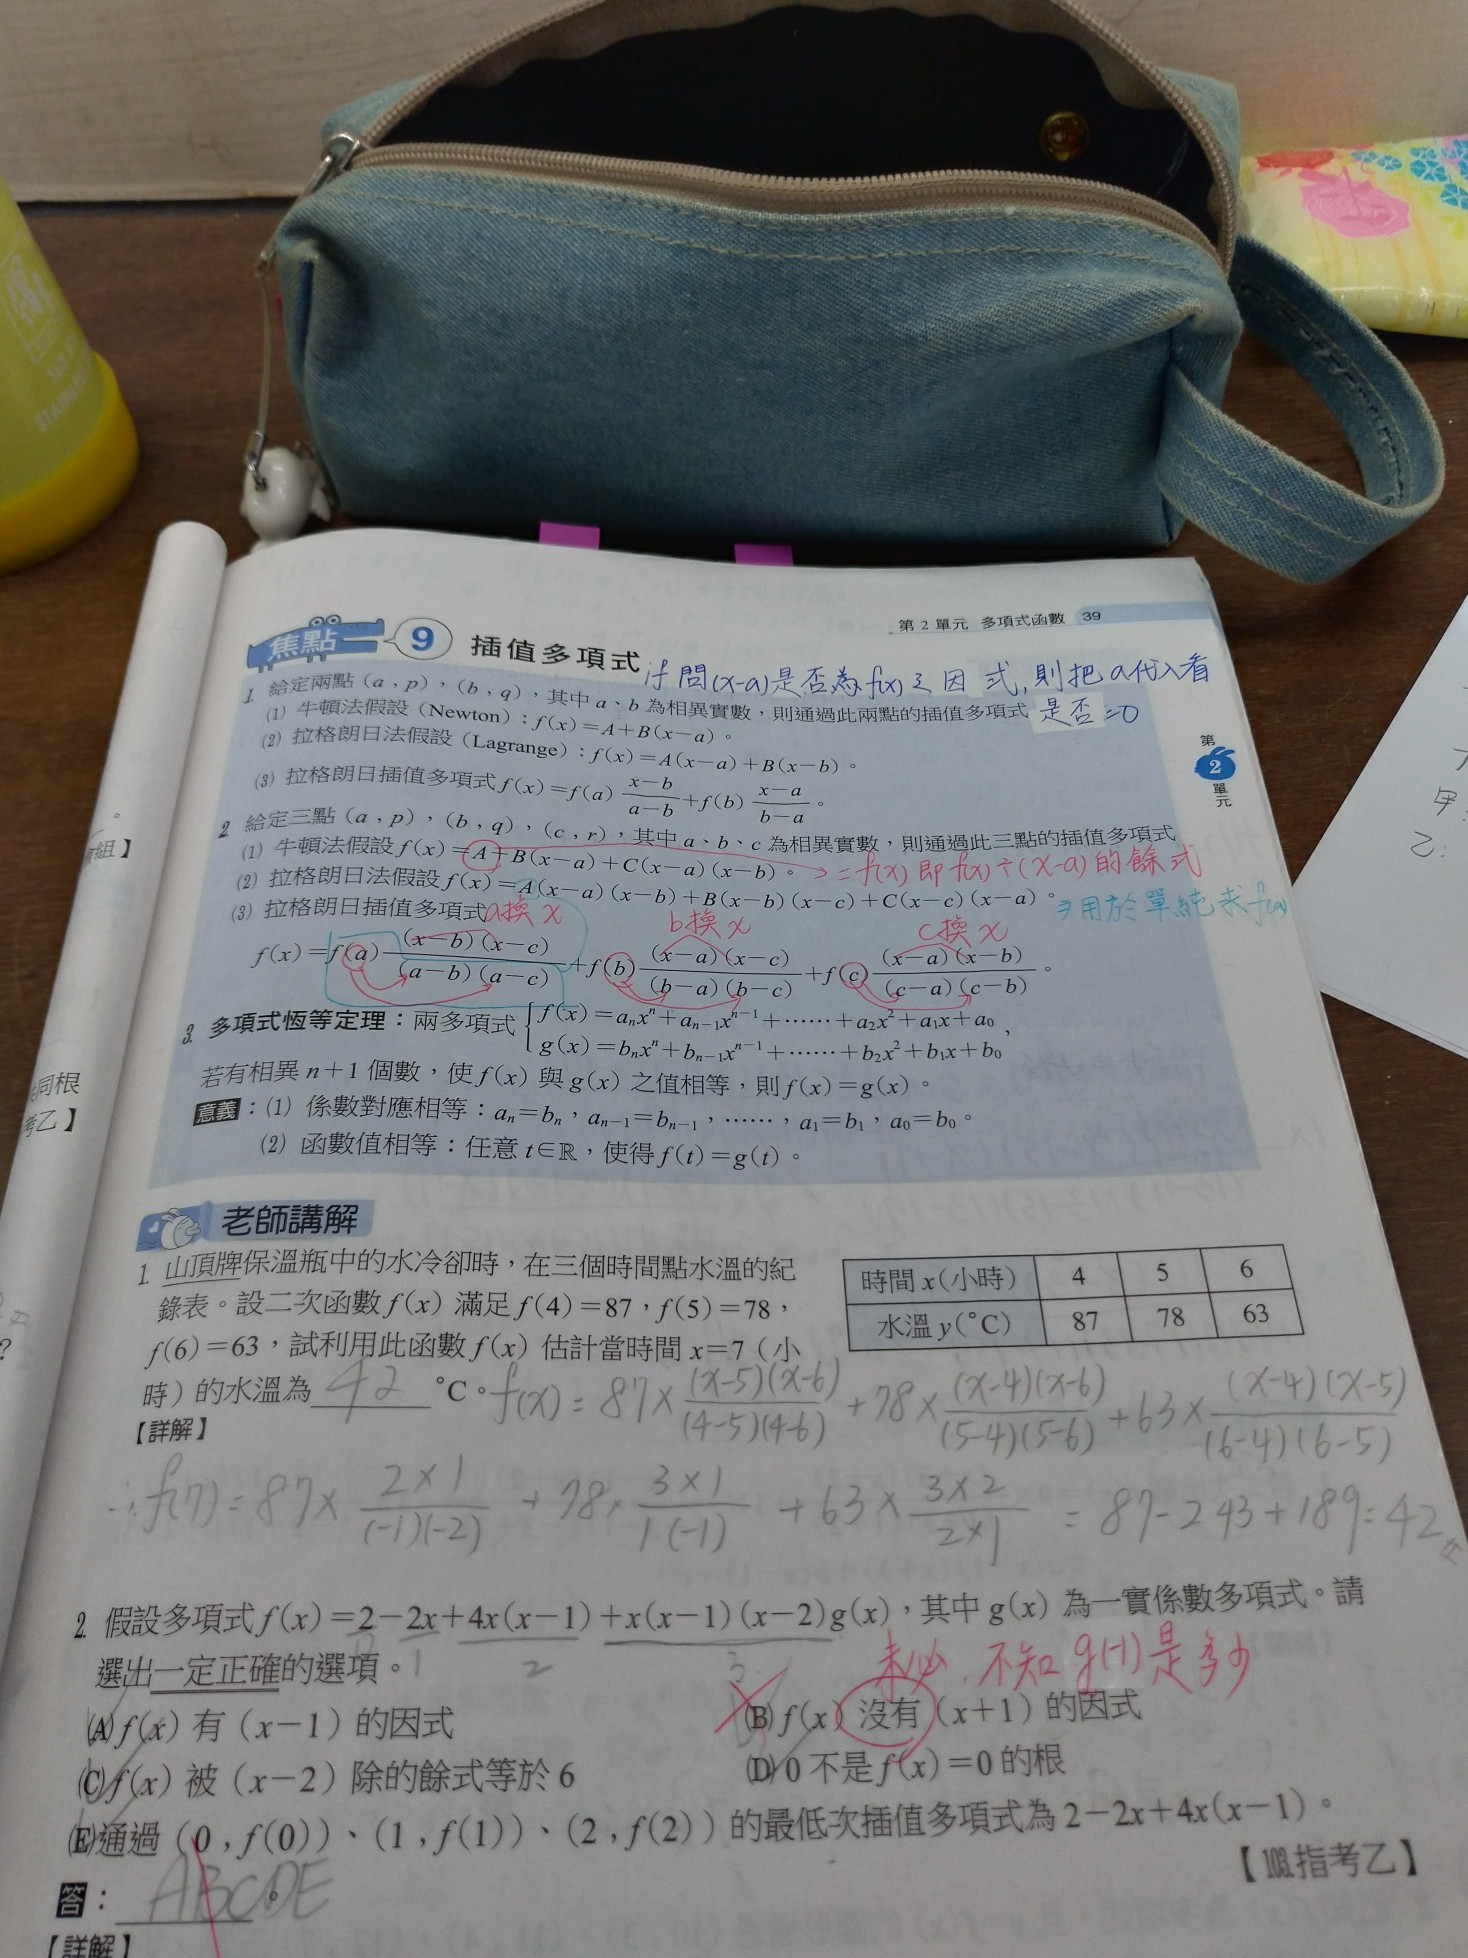 SUS
STAINLESS
第 2 單元 多項式函數 39
焦點 9 插值多項式
if 問(x-a)是否為f(x)之因式,則把a代入看
是否=0
1. 給定兩點(a,p),(b,q),其中a、b為相異實數,則通過此兩點的插值多項式
(1) 牛頓法假設(Newton):f(x)=A+B(x-a)。
(2) 拉格朗日法假設(Lagrange):f(x)=A(x-a)+B(x-b)。
(3) 拉格朗日插值多項式f(x)=f(a)\frac{x-b}{a-b}+f(b)\frac{x-a}{b-a}。
第
2
單
元
2. 給定三點(a,p),(b,q),(c,r),其中a、b、c為相異實數,則通過此三點的插值多項式
(1) 牛頓法假設f(x)=A+B(x-a)+C(x-a)(x-b)。 → =f(x) 即f(x)÷(x-a)的餘式
(2) 拉格朗日法假設f(x)=A(x-a)(x-b)+B(x-b)(x-c)+C(x-c)(x-a)。 用於單純求f(x)
(3) 拉格朗日插值多項式 a換x b換x c換x
f(x)=f(a)\frac{(x-b)(x-c)}{(a-b)(a-c)}+f(b)\frac{(x-a)(x-c)}{(b-a)(b-c)}+f(c)\frac{(x-a)(x-b)}{(c-a)(c-b)}。
3. 多項式恆等定理:兩多項式
f(x)=aₙxⁿ+aₙ₋₁xⁿ⁻¹+……+a₂x²+a₁x+a₀
g(x)=bₙxⁿ+bₙ₋₁xⁿ⁻¹+……+b₂x²+b₁x+b₀ ,
若有相異n+1個數,使f(x)與g(x)之值相等,則f(x)=g(x)。
意義:(1) 係數對應相等:aₙ=bₙ,aₙ₋₁=bₙ₋₁,……,a₁=b₁,a₀=b₀。
(2) 函數值相等:任意t∈ℝ,使得f(t)=g(t)。
老師講解
1. 山頂牌保溫瓶中的水冷卻時,在三個時間點水溫的紀
錄表。設二次函數f(x)滿足f(4)=87,f(5)=78,
f(6)=63,試利用此函數f(x)估計當時間x=7(小
時)的水溫為 42 °C。
時間x(小時) 4 5 6
水溫y(°C) 87 78 63
【詳解】
f(x)=87×\frac{(x-5)(x-6)}{(4-5)(4-6)}+78×\frac{(x-4)(x-6)}{(5-4)(5-6)}+63×\frac{(x-4)(x-5)}{(6-4)(6-5)}
∴f(7)=87×\frac{2×1}{(-1)(-2)}+78×\frac{3×1}{1(-1)}+63×\frac{3×2}{2×1}=87-243+189=42
2. 假設多項式f(x)=2-2x+4x(x-1)+x(x-1)(x-2)g(x),其中g(x)為一實係數多項式。請
選出一定正確的選項。
1 2 3
未必,不知g(-1)是多少
(A) f(x)有(x-1)的因式
(B) f(x)沒有(x+1)的因式
(C) f(x)被(x-2)除的餘式等於6
(D) 0不是f(x)=0的根
(E) 通過(0,f(0))、(1,f(1))、(2,f(2))的最低次插值多項式為2-2x+4x(x-1)。
【103.指考乙】
答: ABCDE 。
【詳解】
組】
同根
考乙】
?
甲:
乙: